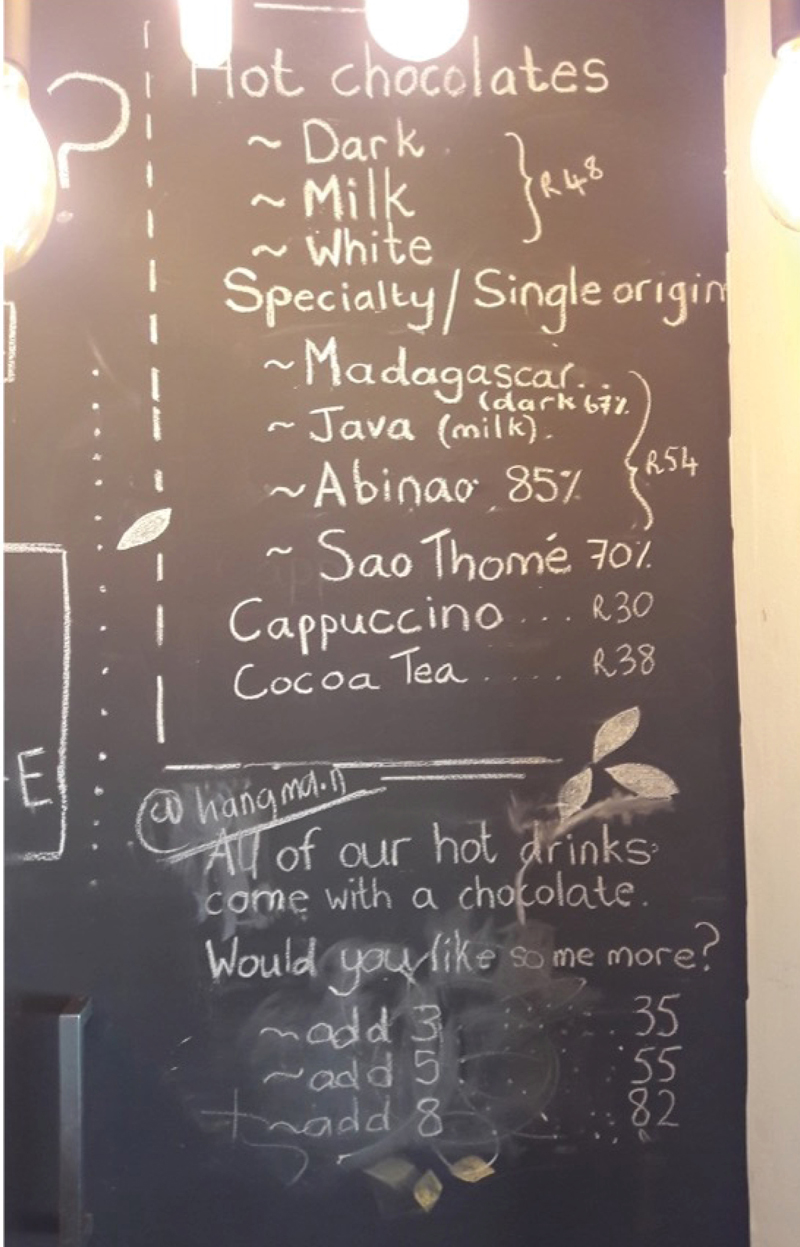 ?
Hot chocolates
~ Dark
~ Milk
~ White
} R48
Specialty / Single origin
~ Madagascar..
(dark 67%
~ Java (milk).
~ Abinao 85%
} R54
~ Sao Thomé 70%
Cappuccino ... R30
Cocoa Tea ..... R38
E
@hangma.n
All of our hot drinks
come with a chocolate.
Would you like some more?
~add 3 ...... 35
~add 5 ...... 55
~add 8 ...... 82